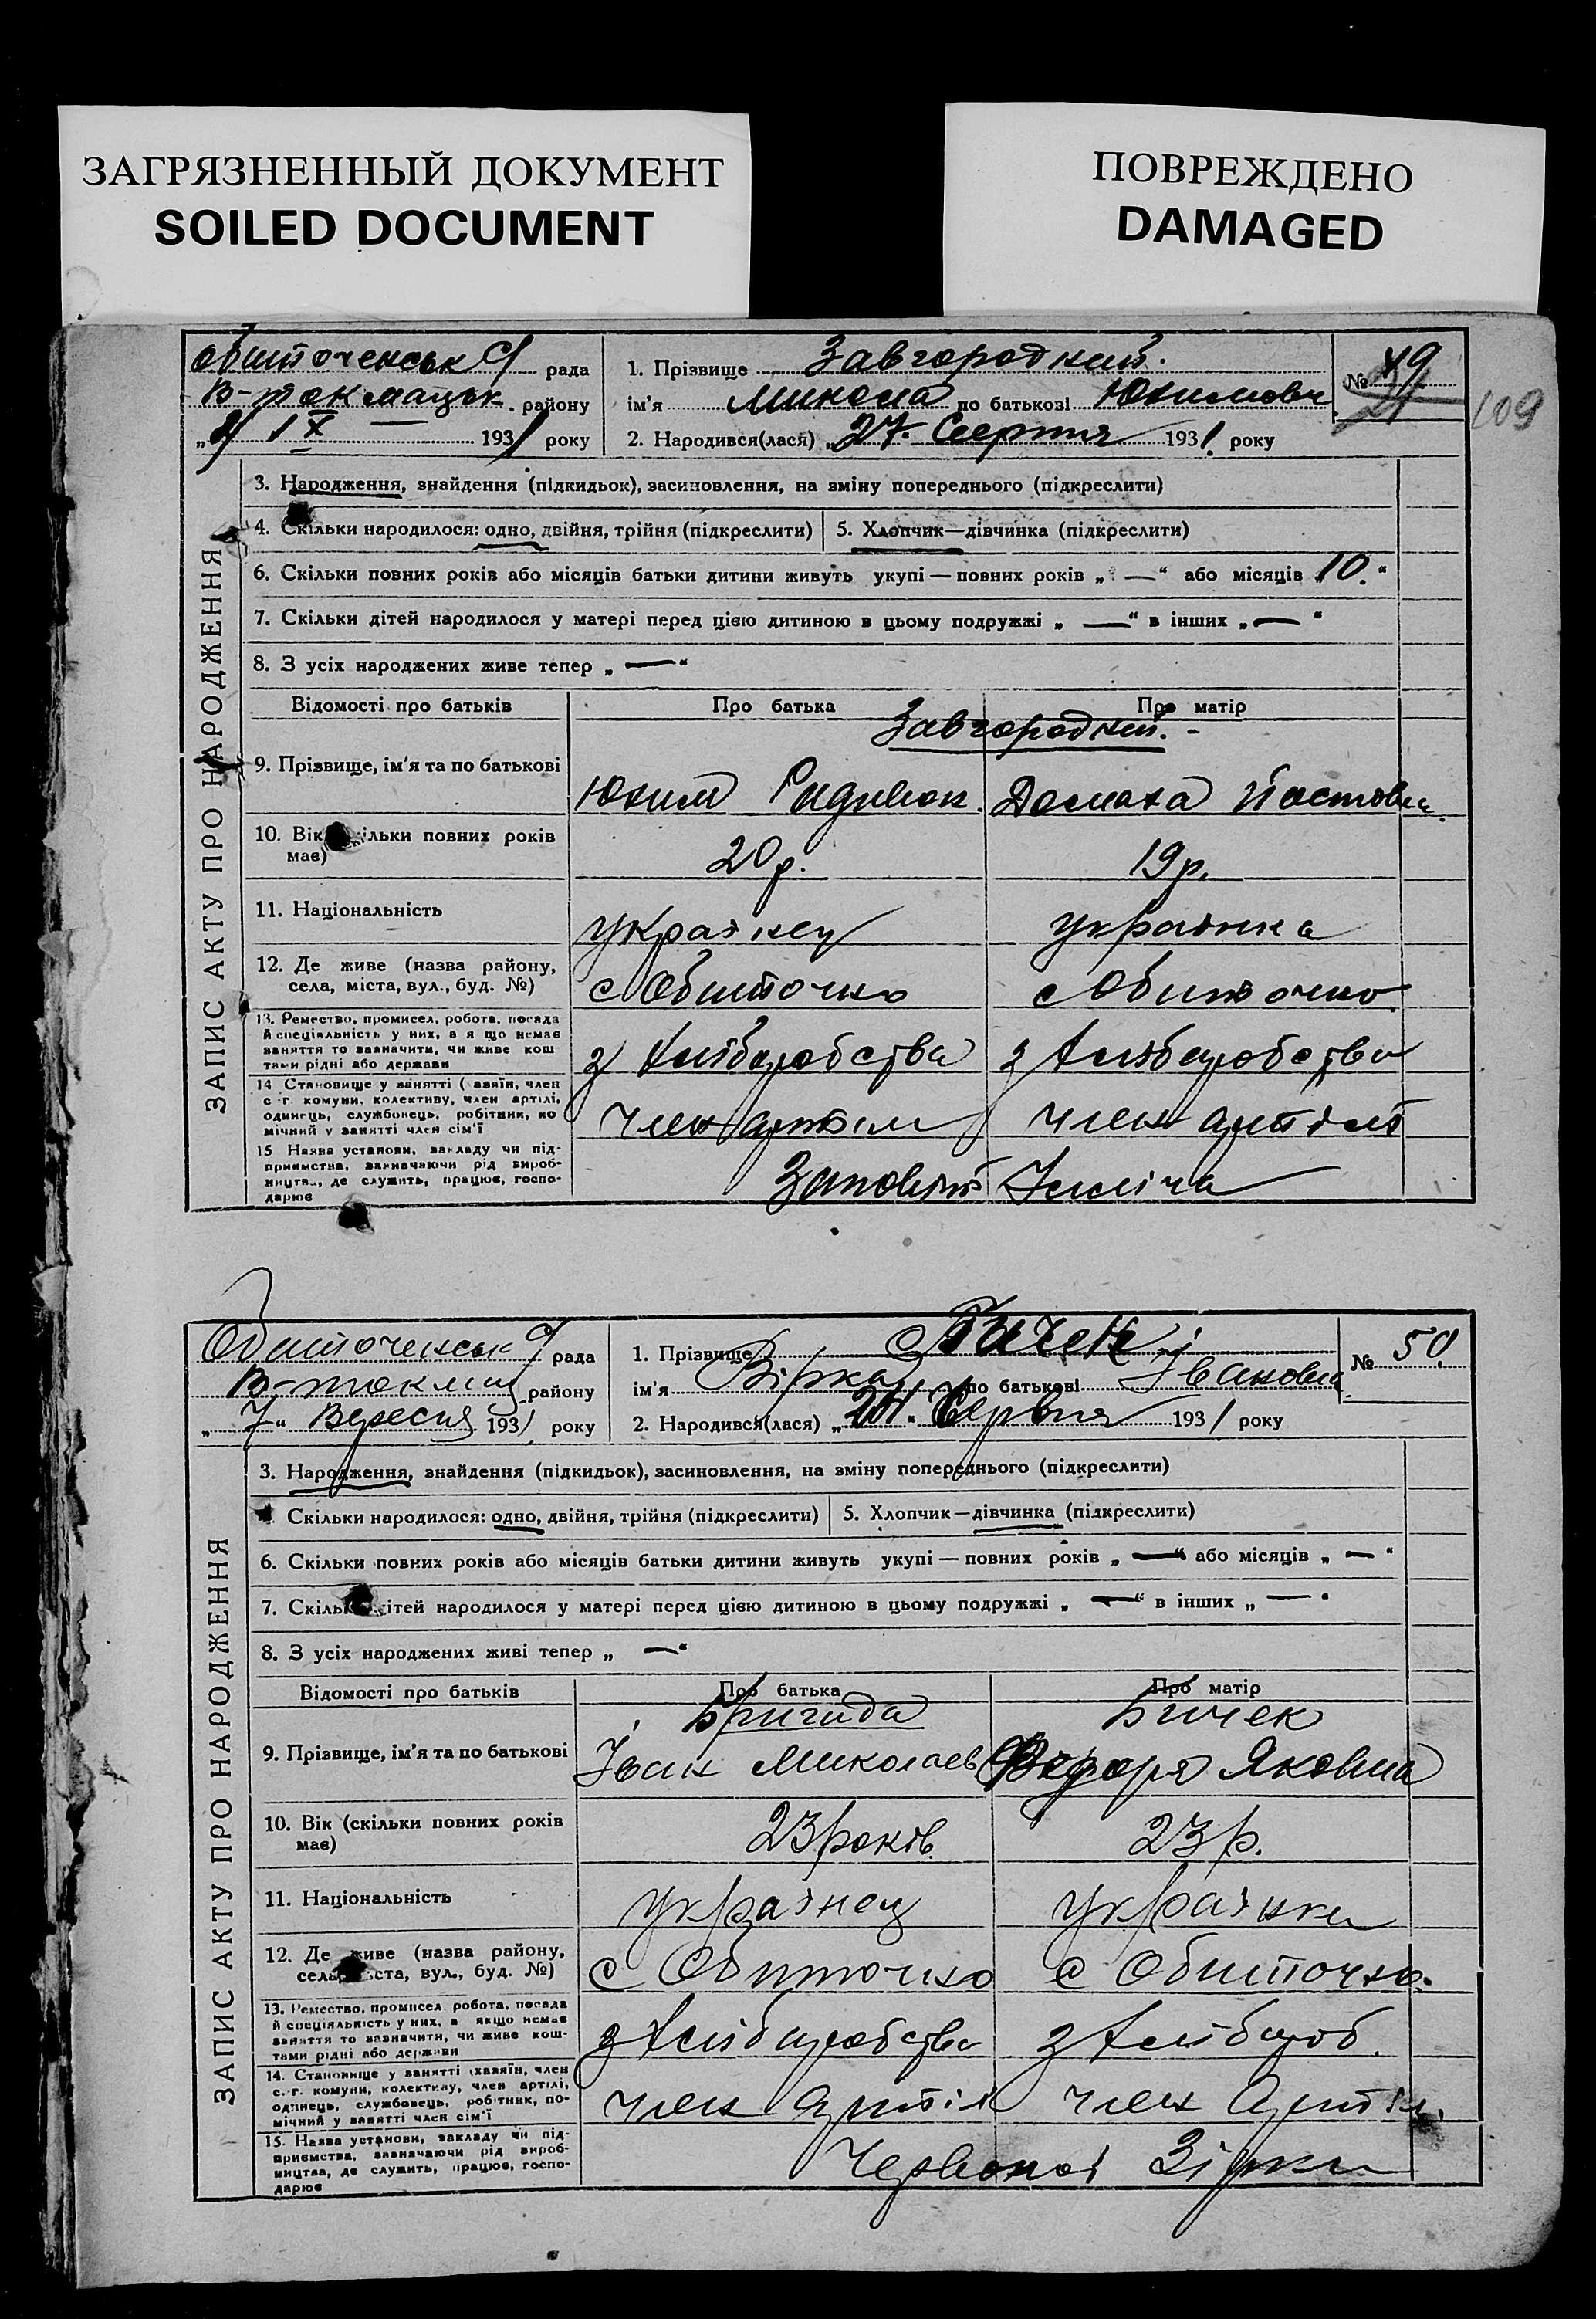 ЗАГРЯЗНЕННЫЙ ДОКУМЕНТ
SOILED DOCUMENT
ПОВРЕЖДЕНО
DAMAGED
Обиточенськ с/ рада
В-токмацьк. району
IX 1931 року
1. Прізвище Завгородний.
ім'я Микола по батькові Юхимович
2. Народився(лася) „27. Серпня 1931. року
№ 49
109
ЗАПИС АКТУ ПРО НАРОДЖЕННЯ
3. Народження, знайдення (підкидьок), засиновлення, на зміну попереднього (підкреслити)
4. Скільки народилося: одно, двійня, трійня (підкреслити)
5. Хлопчик—дівчинка (підкреслити)
6. Скільки повних років або місяців батьки дитини живуть укупі — повних років „ — “ або місяців „10.“
7. Скільки дітей народилося у матері перед цією дитиною в цьому подружжі „ — “ в інших „ — “
8. З усіх народжених живе тепер „ — “
Відомості про батьків
Про батька
Про матір
Завгородний. -
9. Прізвище, ім'я та по батькові
Юхим
Домаха
10. Вік (скільки повних років має)
20 р.
19 р.
11. Національність
українец
українка
12. Де живе (назва району,
села, міста, вул., буд. №)
с Обиточно
с Обиточно
13. Ремество, промисел, робота, посада
й спеціяльність у них, а я що немає
заняття то зазначити, чи живе кош
тами рідні або держави
з хліборобства
з хліборобства
14 Становище у занятті (хазяїн, член
с-г. комуни, колективу, член артілі,
одинець, службовець, робітник, по
мічний у занятті член сім'ї
член артіли
член артілі
15 Назва установи, закладу чи під-
приємства, зазначаючи рід вироб-
ництва, де служить, працює, госпо-
дарює
Заповіт Ілліча
Обиточенськ с/ рада
В-токмац району
„ 7 “ Вересня 1931 року
1. Прізвище Бичек
ім'я Вірка по батькові Івановна
2. Народився(лася) 1931 року
№ 50
ЗАПИС АКТУ ПРО НАРОДЖЕННЯ
3. Народження, знайдення (підкидьок), засиновлення, на зміну попереднього (підкреслити)
4. Скільки народилося: одно, двійня, трійня (підкреслити)
5. Хлопчик—дівчинка (підкреслити)
6. Скільки повних років або місяців батьки дитини живуть укупі — повних років „ — “ або місяців „ — “
7. Скільки дітей народилося у матері перед цією дитиною в цьому подружжі „ — “ в інших „ — “
8. З усіх народжених живі тепер „ — “
Відомості про батьків
Про батька
Про матір
Бригида
Бичек
9. Прізвище, ім'я та по батькові
Іван Миколаев
Федоря Яковна
10. Вік (скільки повних років
має)
23 років.
23 р.
11. Національність
українец
українка
12. Де живе (назва району,
села, міста, вул., буд. №)
с Обиточно
с Обиточно.
13. Ремество, промисел робота, посада
й спеціяльність у них, а якщо немає
заняття то зазначити, чи живе кош-
тами рідні або держави
з хліборобства
з хлібороб.
14. Становище у занятті (хазяїн, член
с.-г. комуни, колективу, член артілі,
одинець, службовець, робітник, по-
мічний у занятті член сім'ї
член артіл
член артіл.
15. Назва установи, закладу чи під-
приємства, зазначаючи рід вироб-
ництва, де служить, працює, госпо-
дарює
Червоної Зірки